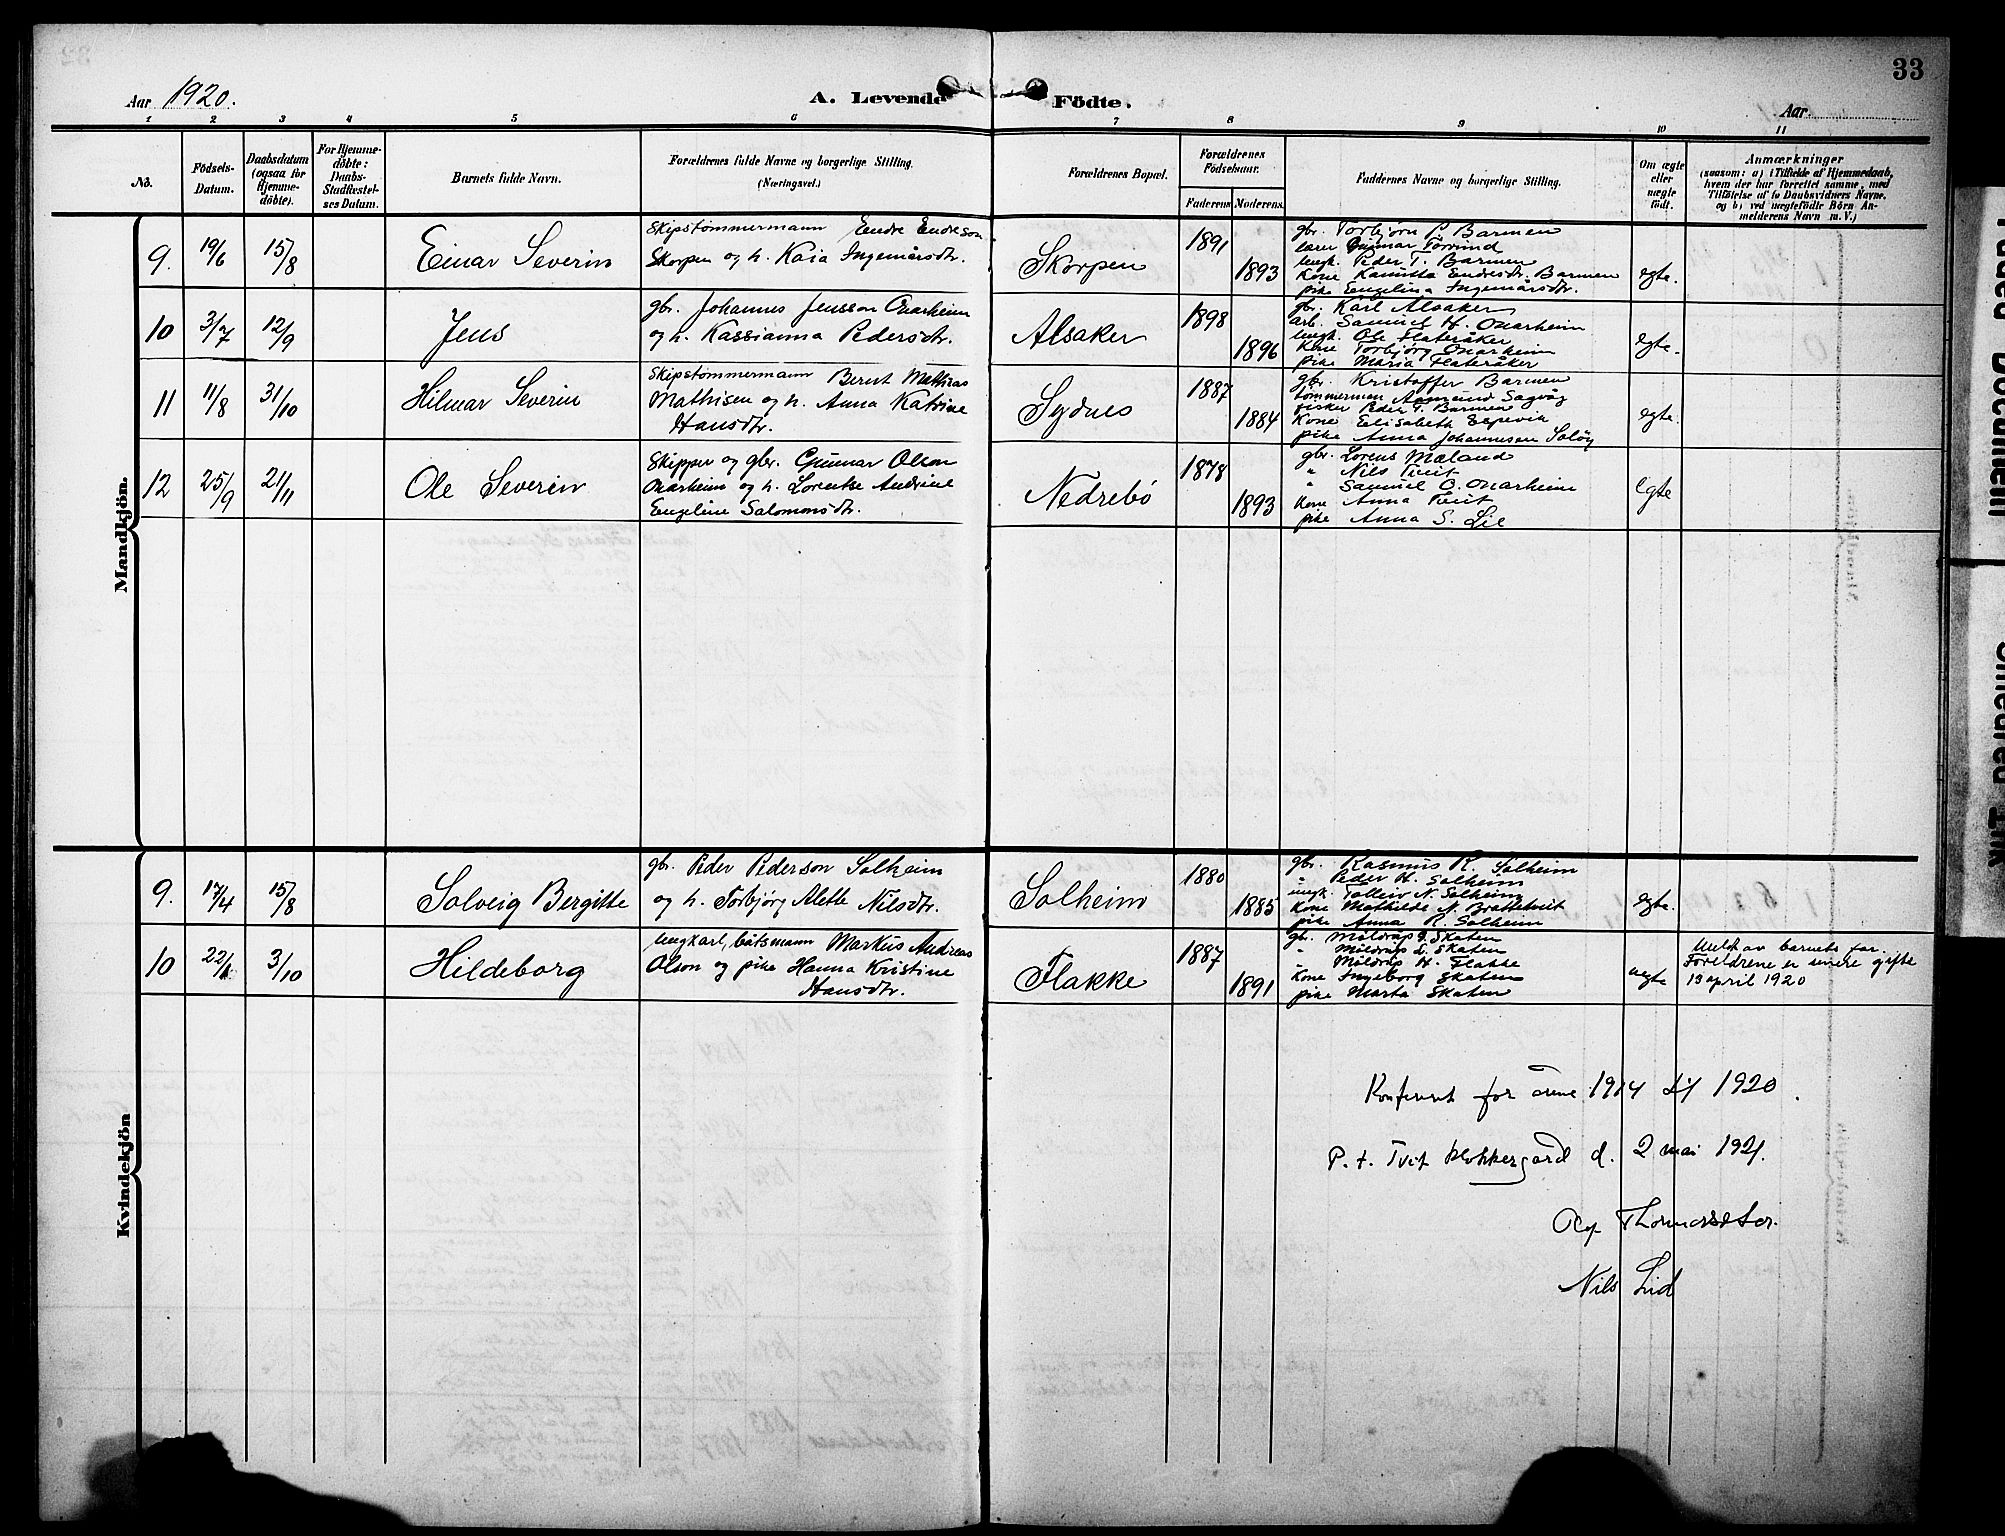 33
Aar 1920.
A. Levende Födte.
Aar
1 2 3 4 5 6 7 8 9 10 11
No.
Födsels-Datum.
Daabsdatum (ogsaa for Hjemme-döbte).
For Hjemme-döbte: Daabs-Stadfæstel-ses Datum.
Barnets fulde Navn.
Forældrenes fulde Navne og borgerlige Stilling.
(Næringsvei.)
Forældrenes Bopæl.
Forældrenes Födselsaar.
Faderens Moderens
Faddernes Navne og borgerlige Stilling.
Om ægte eller uægte födt.
Anmærkninger
(saasom: a) i Tilfælde af Hjemmedaab,
hvem der har forrettet samme, med
Tilföielse af to Daabsvidners Navne,
og b) ved uægtefödte Börn An-
melderens Navn m. V.)
Mandkjön.
9. 19/6 15/8 Einar Severin
Skipstömmermann Endre Endreson
Skorpen og h. Kaia Ingemårsdtr.
Skorpen 1891 1893
gbr. Torbjörn P. Barmen
lærer Gunnar Torvund
ungk. Peder T. Barmen
Kone Kamilla Endresdtr. Barmen
pike Engelina Ingemårsdtr.
egte.
10 3/7 12/9 Jens
gbr. Johannes Jensson Onarheim
og h. Kassianna Pedersdtr.
Alsaker 1898 1896
gbr. Karl Alsaker
arb. Samuel H. Onarheim
ungk. Ole Flateråker
Kone Torbjörg Onarheim
pike Maria Flateråker
egte.
11 11/8 31/10 Hilmar Severin
Skipstömmermann Bernt Mathias
Mathisen og h. Anna Katrine
Hansdtr.
Sydnes 1887 1884
gbr. Kristoffer Barmen
tömmerman Aamund Sagvåg
fisker Peder T. Barmen
Kone Elisabeth
pike Anna Johannesen
egte.
12 25/9 21/11 Ole Severin
Skipper og gbr. Gunnar Olson
Onarheim og h. Lorentse Andrine
Engeline Salomonsdtr.
Nedrebö 1878 1893
gbr. Lorens Mæland
" Nils Tveit
" Samuel O. Onarheim
Kone Anna Tveit
pike Anna S. Lie
Egte
Kvindekjön
9. 17/4 15/8 Solveig Bergitte
gbr. Peder Pederson Solheim
og h. Torbjörg Alette Nilsdtr.
Solheim 1880 1885
gbr. Rasmus R. Solheim
" Peder H. Solheim
ungk. Tolleiv N. Solheim
Kone Mathilde N. Brattetveit
pike Anna R. Solheim
egte.
10 3/10 Hildeborg
Ungkarl, båtsmann Markus Andreas
Olson og pike Hanna Kristine
Hansdtr.
Flakke 1887 1891
gbr. Möldrup Skaten
" Möldrup L. Skaten
" Möldrup H. Flakke
Kone Ingeborg Skaten
pike Marta Skaten
uegte
Meldt av barnets far.
Foreldrene er senere gifte
13 april 1920
Konferert for årene 1914 til 1920.
P. t. Tveit klokkergard d. 2 mai 1921.
Thomassæter.
Nils Lid